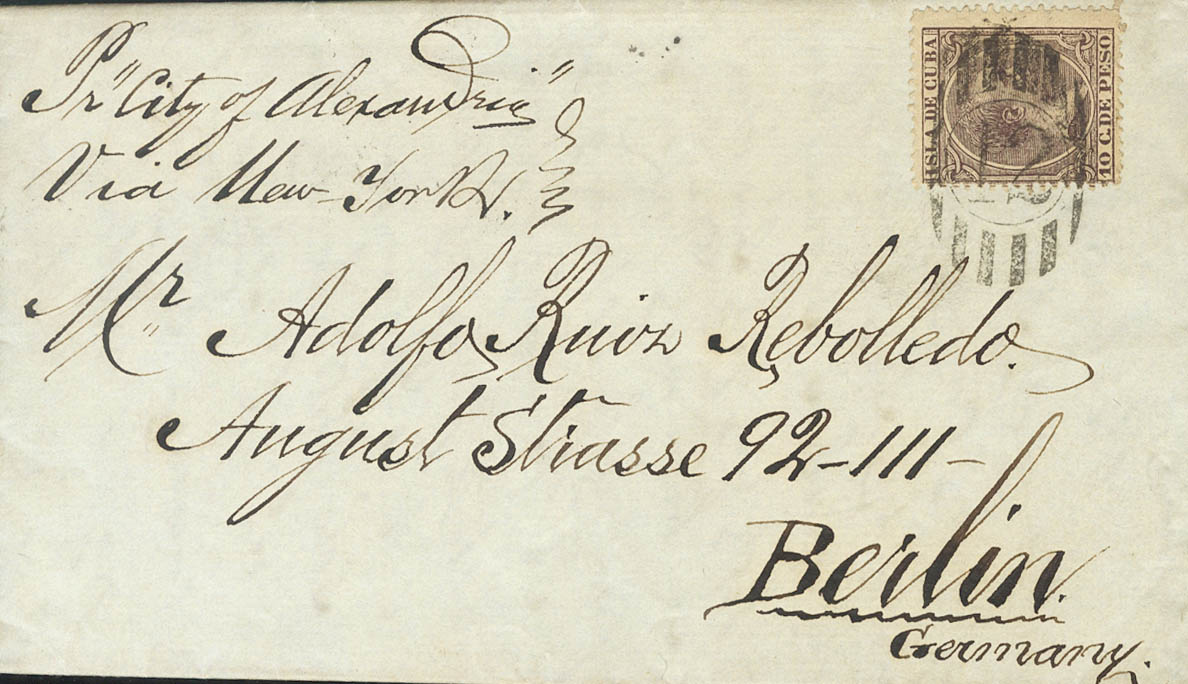 Pr "City of Alexandria"
Via New-York.
ISLA DE CUBA
10 C. DE PESO
Mr Adolfo Ruiz Rebolledo.
August Strasse 92-III-
Berlin.
Germany.